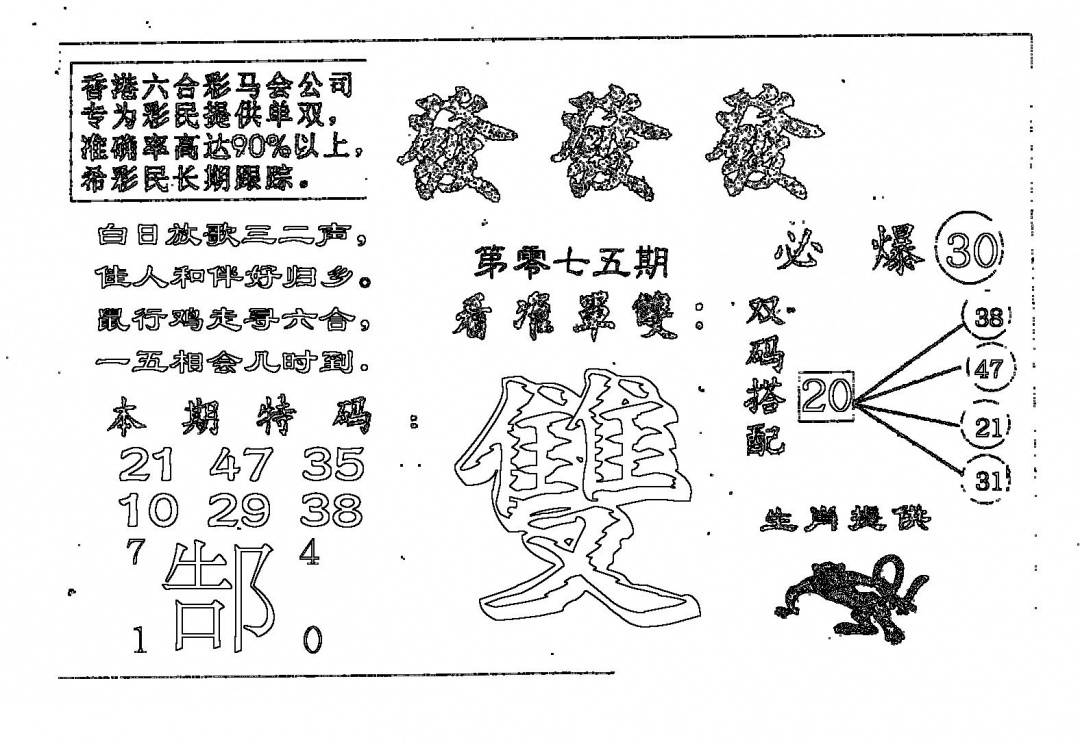 香港六合彩马会公司
专为彩民提供单双，
准确率高达90%以上，
希彩民长期跟踪。
發發發
白日放歌三二声，
佳人和伴好归乡。
鼠行鸡走寻六合，
一五相会几时到.
本期特码：
21 47 35
10 29 38
7 4
郜
1 0
第零七五期
看准單雙：
雙
必爆 30
双码搭配
20
38
47
21
31
生肖提供